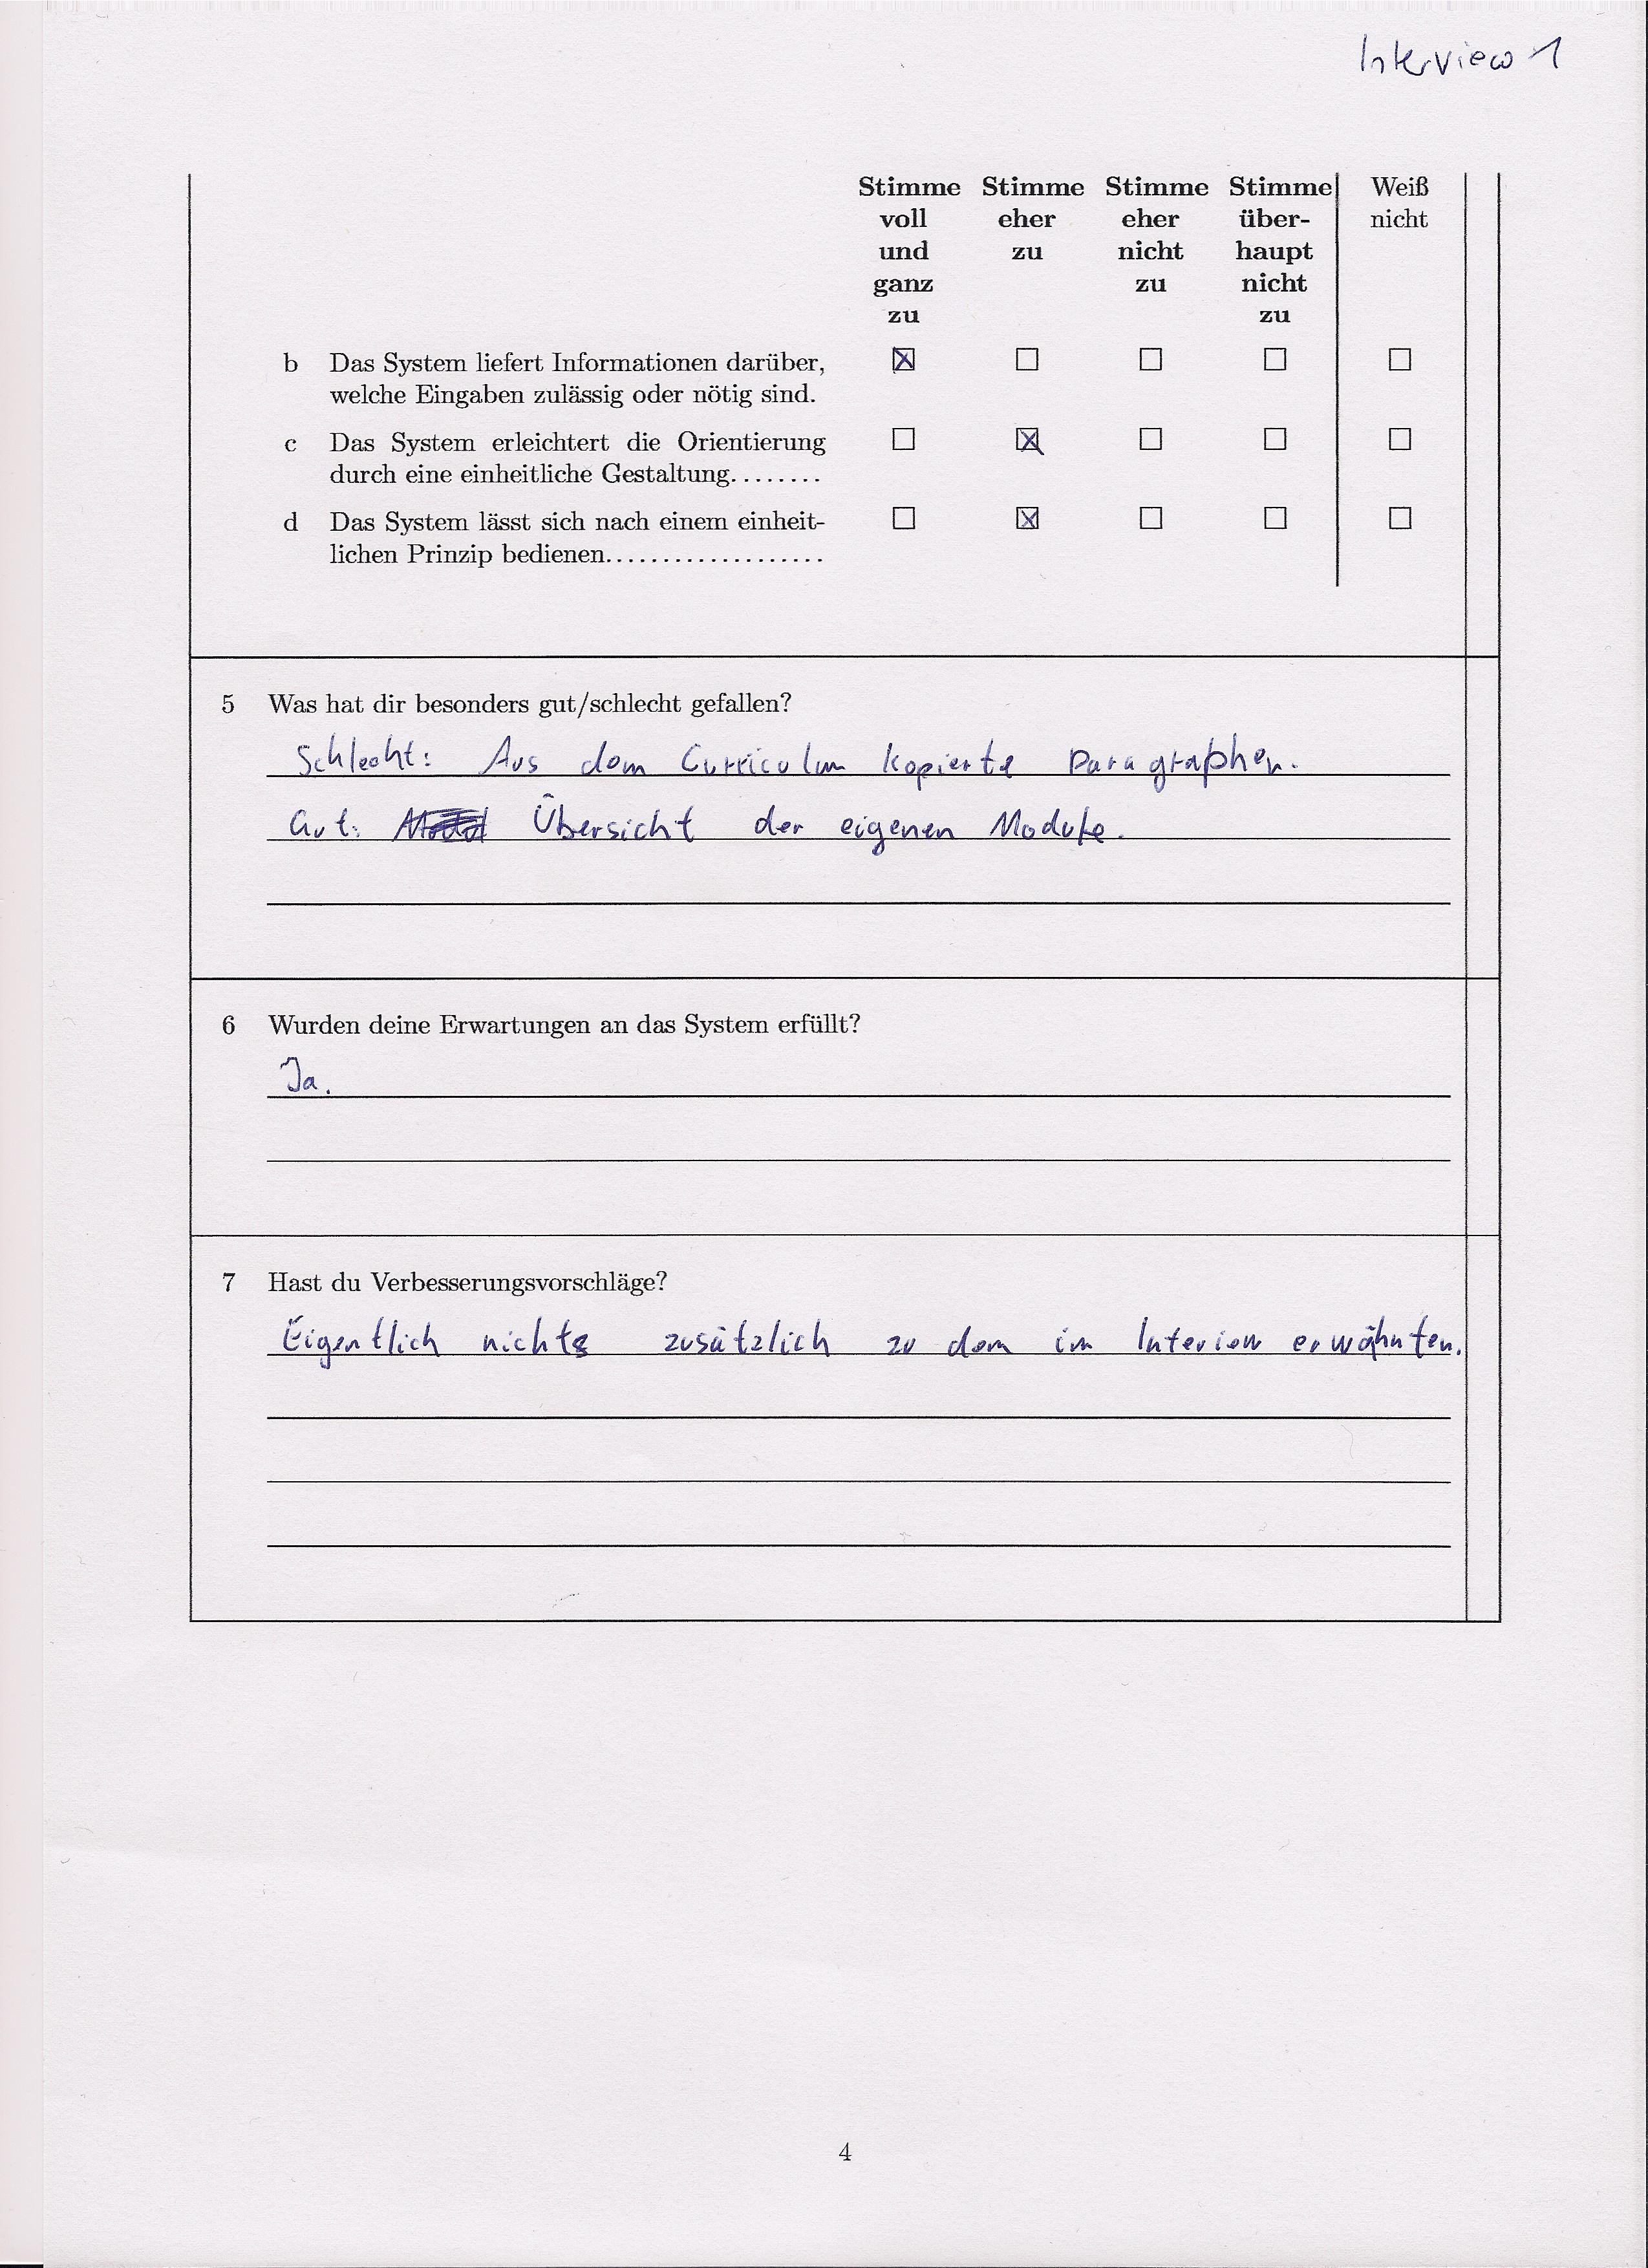 Interview 1
Stimme Stimme Stimme Stimme Weiß
voll eher eher über- nicht
und zu nicht haupt
ganz zu nicht
zu zu
b Das System liefert Informationen darüber,
welche Eingaben zulässig oder nötig sind.
c Das System erleichtert die Orientierung
durch eine einheitliche Gestaltung........
d Das System lässt sich nach einem einheit-
lichen Prinzip bedienen...................
5 Was hat dir besonders gut/schlecht gefallen?
Schlecht: Aus dem Curriculum kopierte Paragraphen.
Gut: Übersicht der eigenen Module.
6 Wurden deine Erwartungen an das System erfüllt?
Ja.
7 Hast du Verbesserungsvorschläge?
Eigentlich nichts zusätzlich zu dem im Interview erwähnten.
4